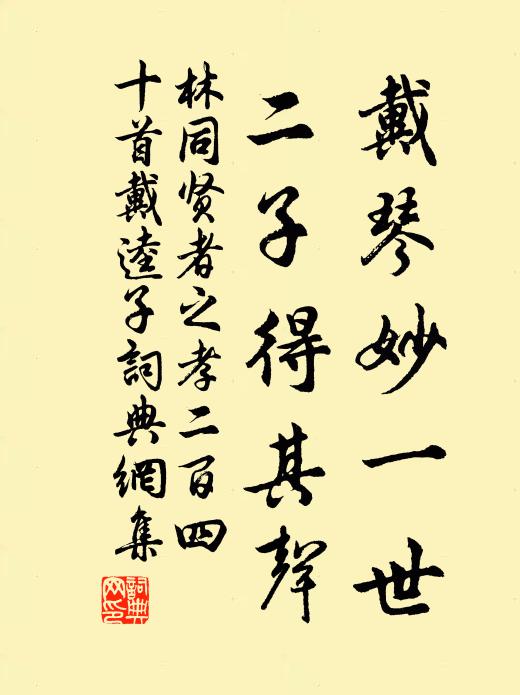 戴琴妙一世
二子得其聲
林同贤者之孝二百四
十首戴逵子詞典網集
詞典
网印